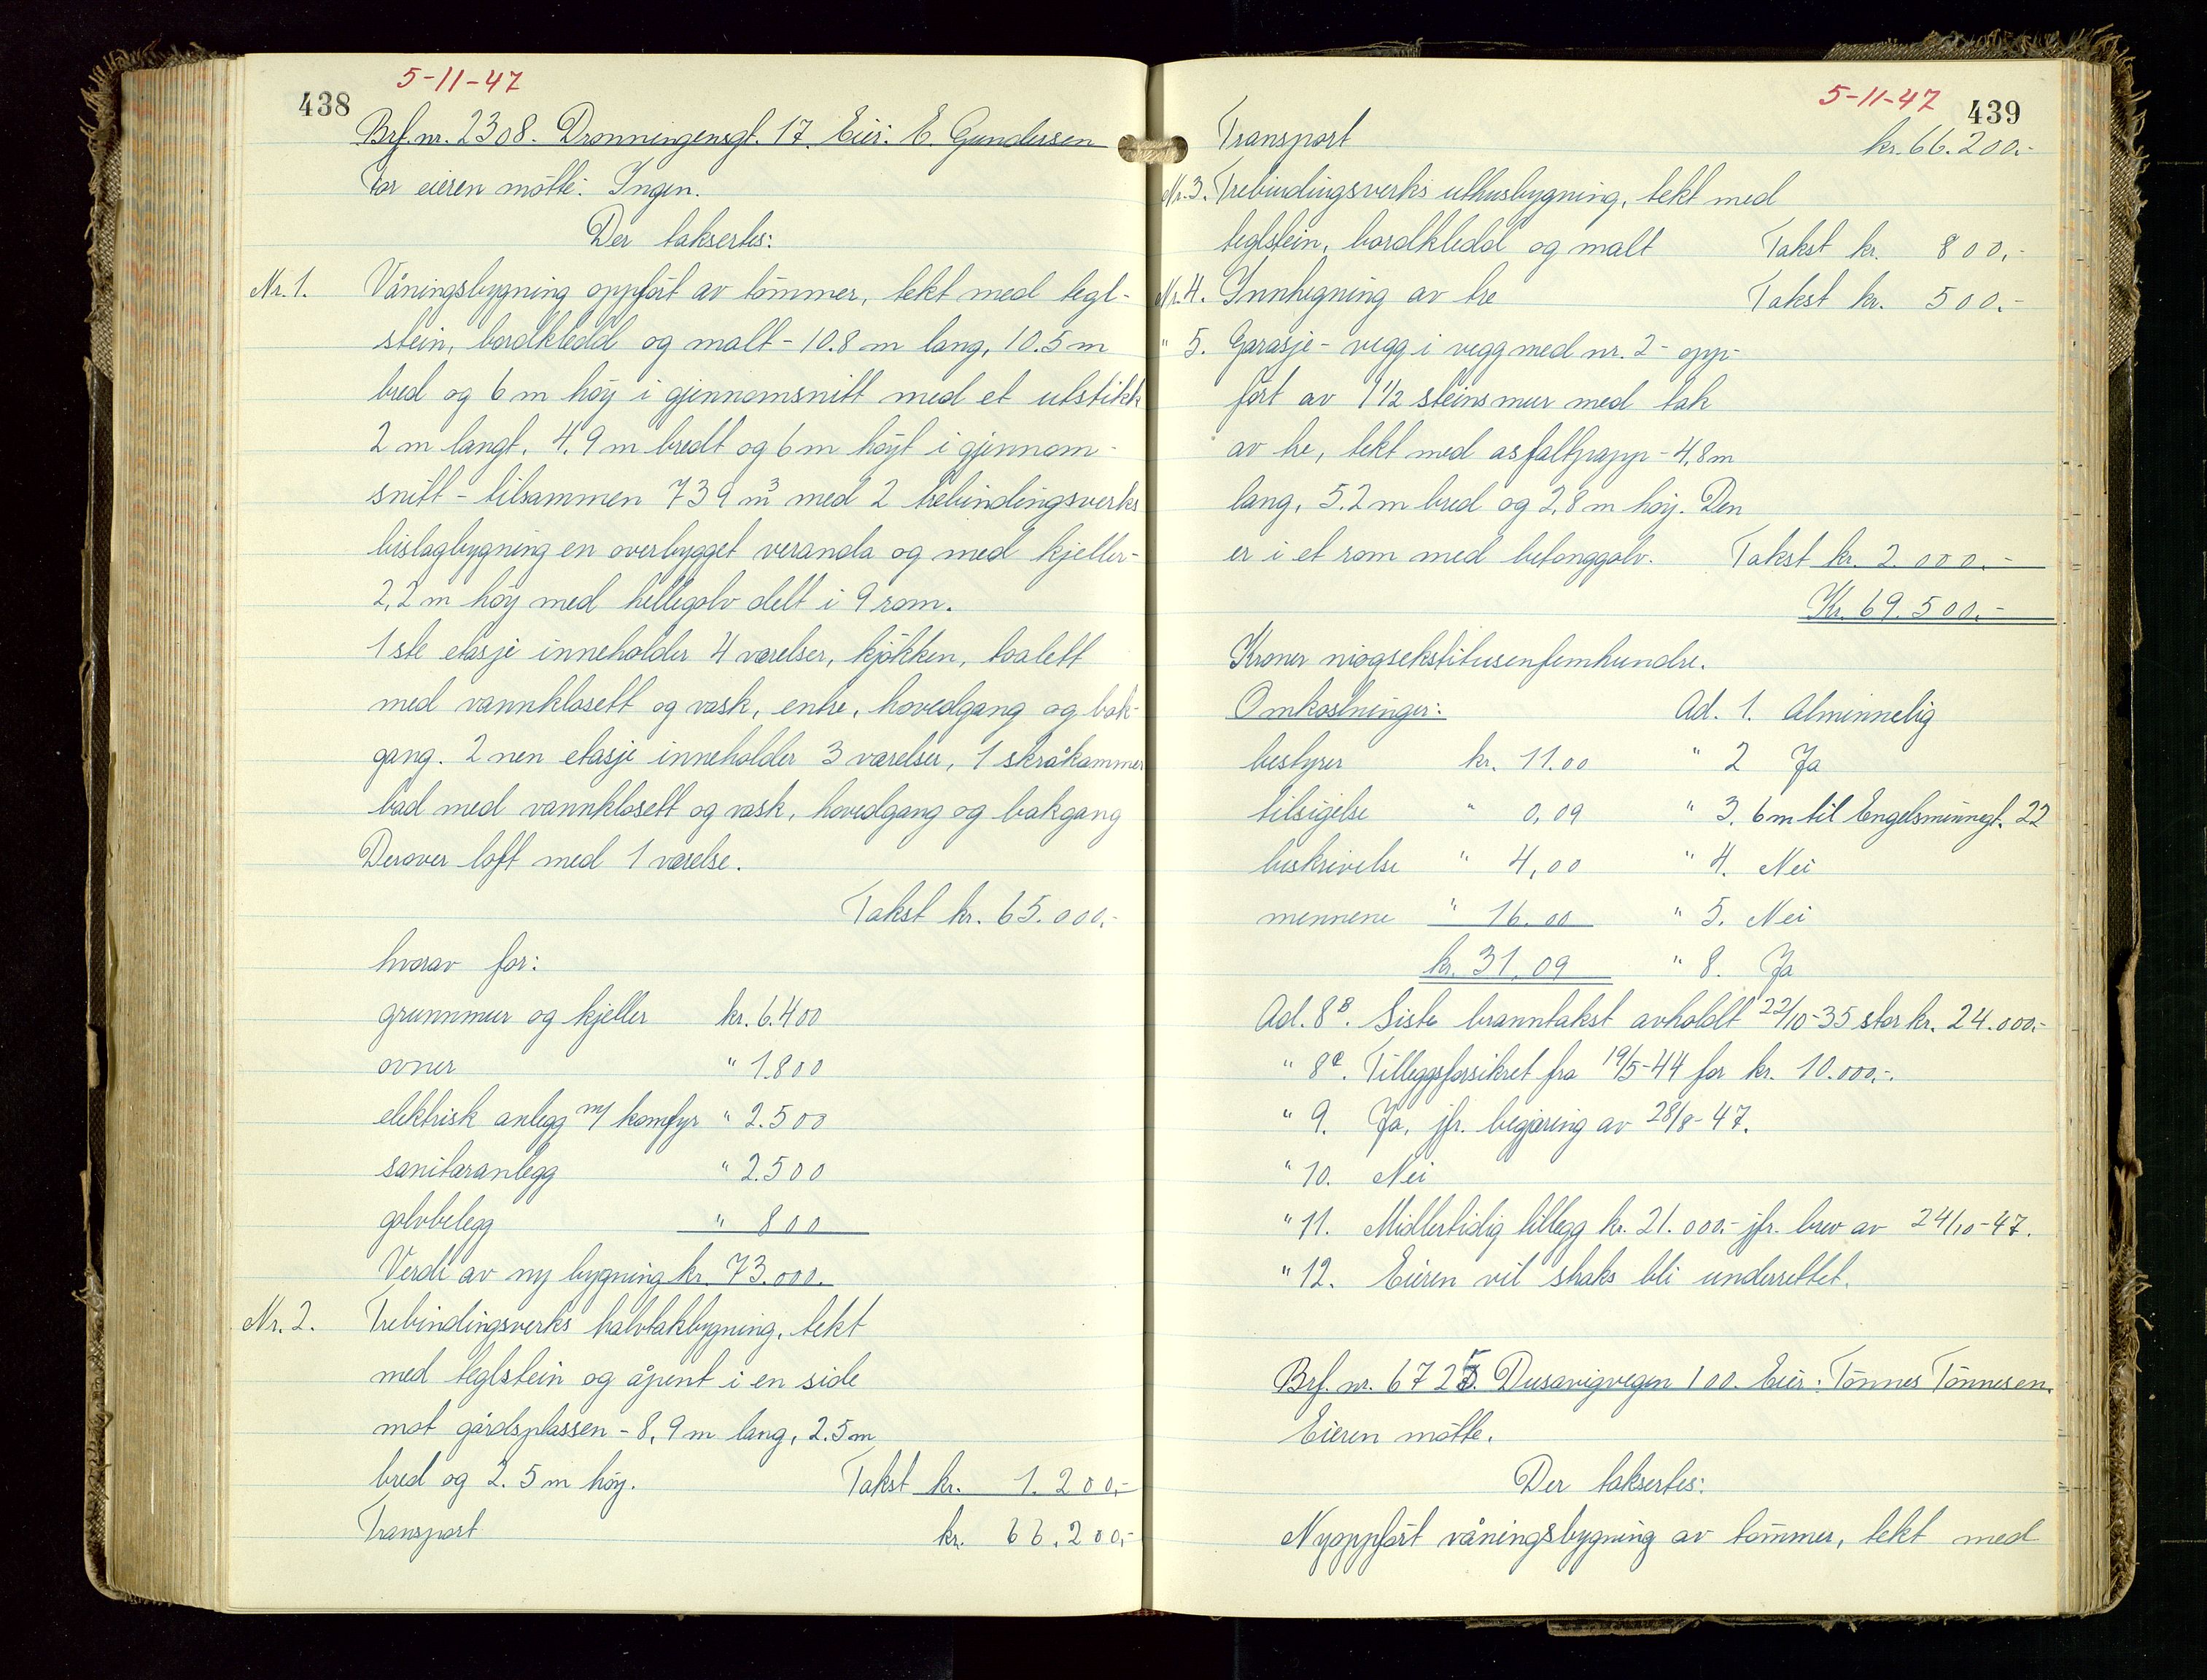 5-11-47
438
Brf. nr. 2308. Dronningensgt. 17. Eier: E. Gundersen
For eieren møtte: Ingen.
Der taksertes:
Nr. 1. Våningsbygning oppført av tømmer, tekt med tegl-
stein, bordkledd og malt - 10.8 m lang, 10.5 m
bred og 6 m høy i gjennomsnitt med et utstikk
2 m langt, 4.9 m bredt og 6 m høyt i gjennom-
snitt - tilsammen 739 m³ med 2 trebindingsverks
bislagbygning en overbygget veranda og med kjeller-
2,2 m høy med hellegolv delt i 9 rom.
1ste etasje inneholder 4 værelser, kjøkken, toalett
med vannklosett og vask, entre, hovedgang og bak-
gang. 2nen etasje inneholder 3 værelser, 1 skråkammer
bad med vannklosett og vask, hovedgang og bakgang
Derover loft med 1 værelse.
Takst kr. 65.000,-
hvorav for:
grunnmur og kjeller kr. 6.400
ovner " 1.800
elektrisk anlegg m/ komfyr " 2.500
sanitæranlegg " 2.500
golvbelegg " 800
Verdi av ny bygning kr. 73.000.
Nr. 2. Trebindingsverks halvtakbygning, tekt
med teglstein og åpent i en side
mot gårdsplassen - 8,9 m lang, 2.5 m
bred og 2.5 m høy. Takst kr. 1.200,-
Transport kr. 66.200,-
5-11-47
439
Transport kr. 66.200.-
Nr. 3. Trebindingsverks uthusbygning, tekt med
teglstein, bordkledd og malt Takst kr. 800,-
Nr. 4. Innhegning av tre Takst kr. 500.-
" 5. Garasje - vegg i vegg med nr. 2 - opp-
ført av 1 1/2 steins mur med tak
av tre, tekt med asfaltpapp - 4,8 m
lang, 5.2 m bred og 2,8 m høy. Den
er i et rom med betonggolv. Takst kr. 2.000.-
Kr. 69.500.-
Kroner niogsekstitusenfemhundre.
Omkostninger: Ad. 1. Alminnelig
bestyrer kr. 11.00 " 2 Ja
tilsigelse " 0,09 " 3. 6 m til Engelsminnegt. 22
beskrivelse " 4,00 " 4. Nei
mennene " 16.00 " 5. Nei
kr. 31,09 " 8. Ja
Ad. 8B. Siste branntakst avholdt 22/10-35 stor kr. 24.000.-
" 8c. Tilleggsforsikret fra 19/5-44 for kr. 10.000,-.
" 9. Ja, jfr. begjæring av 28/8-47.
" 10. Nei
" 11. Midlertidig tillegg kr. 21.000.- jfr. brev av 24/10-47.
" 12. Eieren vil straks bli underrettet.
Brf. nr. 6725. Dusavigvegen 100. Eier: Tønnes Tønnesen.
Eieren møtte.
Der taksertes:
Nyoppført våningsbygning av tømmer, tekt med